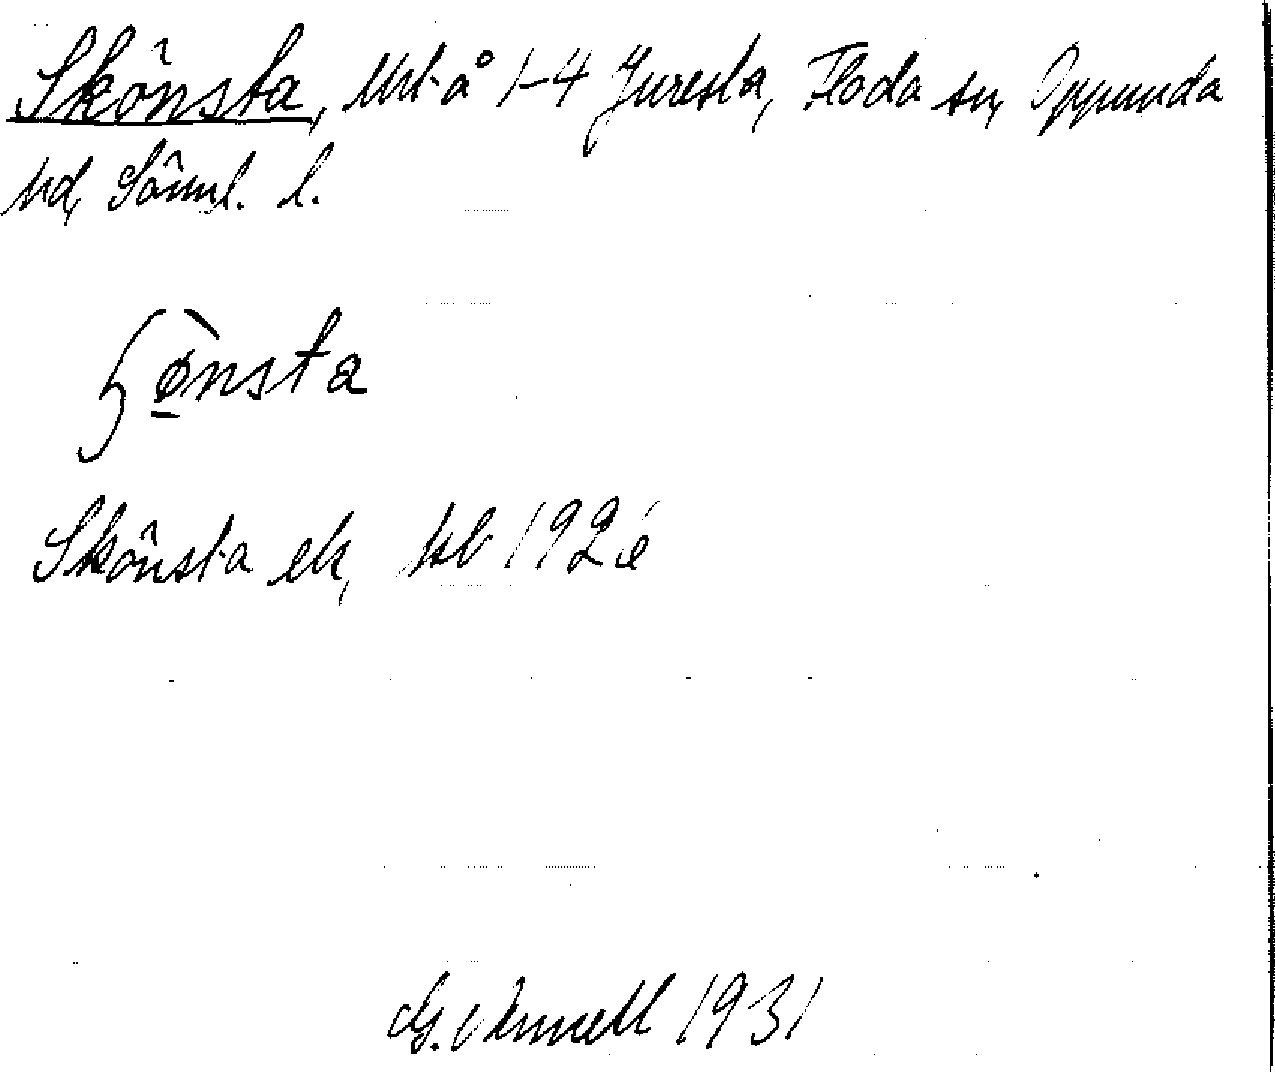 Skönsta, utl. å 1-4 Juresta, Floda sn, Oppunda
hd, Sörml. l.
ʂø̀nsta
Skönsta ek, kb 192
1931